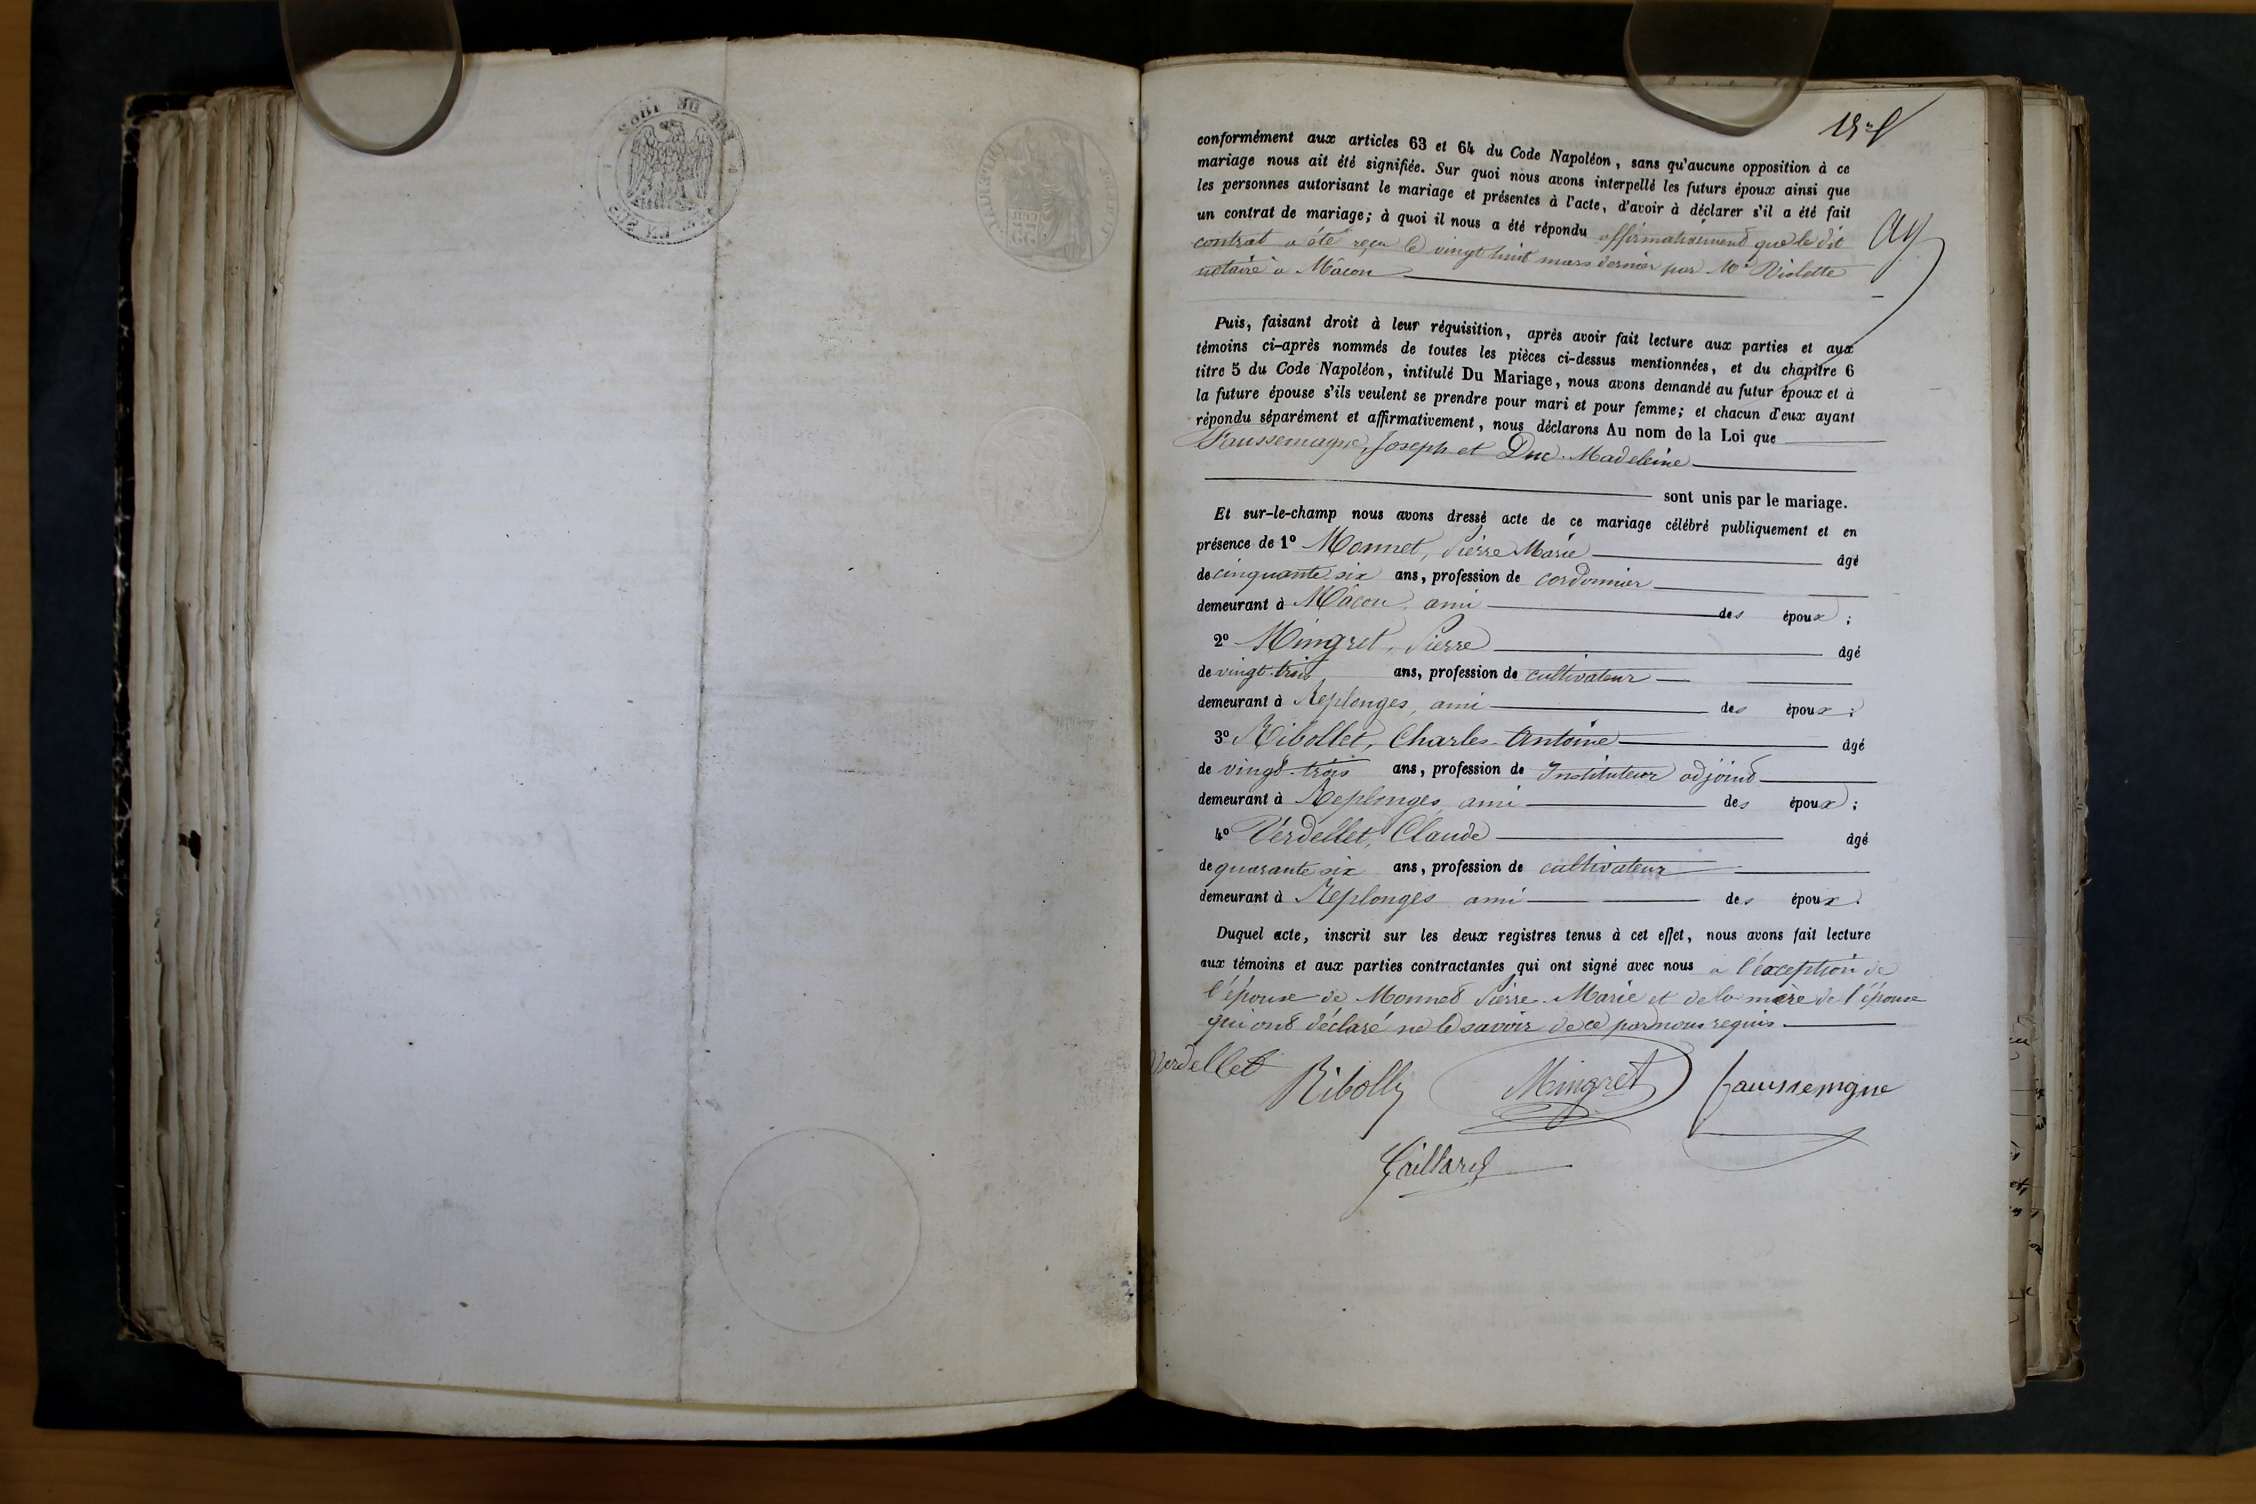 conformément aux articles 63 et 64 du Code Napoléon, sans qu'aucune opposition à ce
mariage nous ait été signifiée. Sur quoi nous avons interpellé les futurs époux ainsi que
les personnes autorisant le mariage et présentes à l'acte, d'avoir à déclarer s'il a été fait
un contrat de mariage; à quoi il nous a été répondu affirmativement que le dit
contrat a été reçu le vingt huit mars dernier par Me Violette
notaire à Mâcon
Puis, faisant droit à leur réquisition, après avoir fait lecture aux parties et aux
témoins ci-après nommés de toutes les pièces ci-dessus mentionnées, et du chapitre 6
titre 5 du Code Napoléon, intitulé Du Mariage, nous avons demandé au futur époux et à
la future épouse s'ils veulent se prendre pour mari et pour femme; et chacun d'eux ayant
répondu séparément et affirmativement, nous déclarons Au nom de la Loi que
Faussemagne, Joseph et Duc Madeleine
sont unis par le mariage.
Et sur-le-champ nous avons dressé acte de ce mariage célébré publiquement et en
présence de 1° Monnet, Pierre Marie âgé
de cinquante six ans, profession de cordonnier
demeurant à Mâcon, ami des époux;
2° Mingret, Pierre âgé
de vingt-trois ans, profession de cultivateur
demeurant à Replonges, ami des époux;
3° Ribollet, Charles-Antoine âgé
de vingt-trois ans, profession de Instituteur adjoint
demeurant à Replonges ami des époux;
4° Verdellet, Claude âgé
de quarante six ans, profession de cultivateur
demeurant à Replonges ami des époux.
Duquel acte, inscrit sur les deux registres tenus à cet effet, nous avons fait lecture
aux témoins et aux parties contractantes qui ont signé avec nous à l'exception de
l'épouse de Monnet Pierre-Marie et de la mère de l'épouse
qui ont déclaré ne le savoir de ce par nous requis.
Verdellet Mingret faussemgne